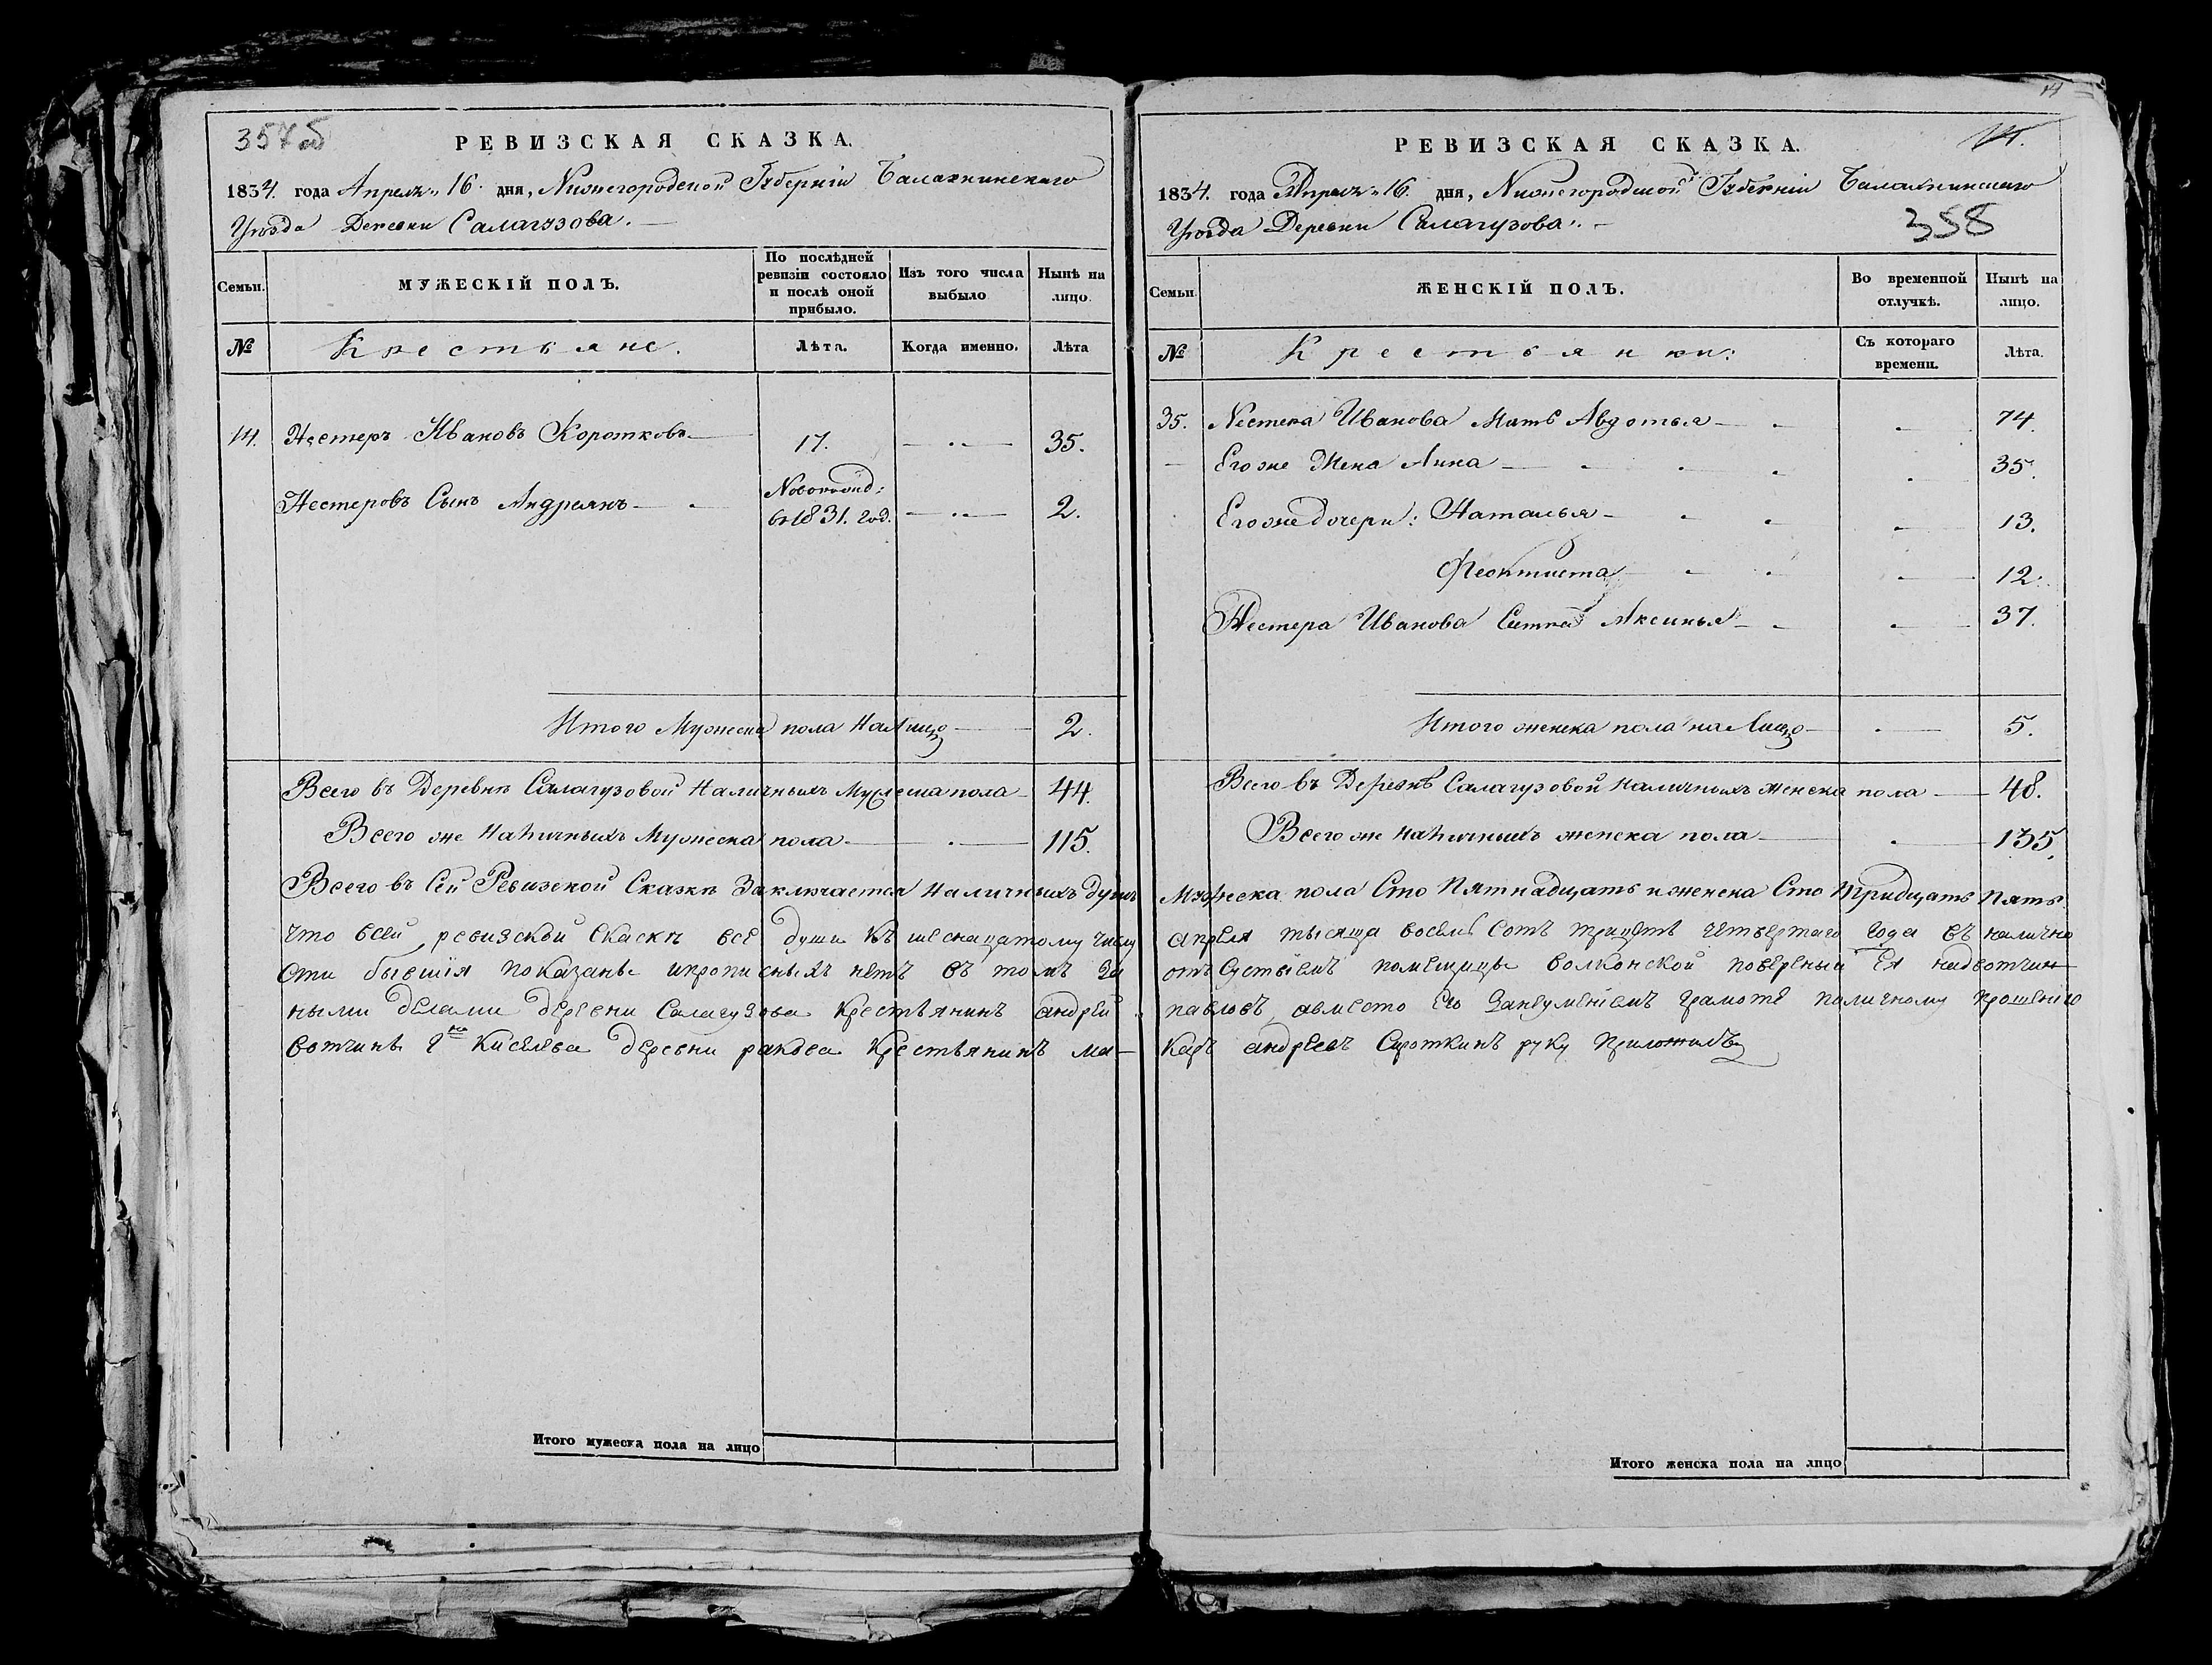 357об
РЕВИЗСКАЯ СКАЗКА.
1834. года Апреля 16. дня, Нижегородской Губерніи Балахнинскаго
Уѣзда Деревни Салагузова.
Семьи.
МУЖЕСКІЙ ПОЛЪ.
По послѣдней ревизіи состояло и послѣ оной прибыло.
Изъ того числа выбыло
Нынѣ на лицо.
№
Крестьяне.
Лѣта.
Когда именно.
Лѣта
14. Нестеръ Ивановъ Коротковъ 17. 35.
Нестеровъ Сынъ Андреянъ Новорожд: въ 1831. год. 2.
Итого Мужеска пола На Лицо 2.
Всего въ Деревнѣ Салагузовой Наличныхъ Мужеска пола 44.
Всего же Наличныхъ Мужеска пола 115.
Всего въ Сей Ревизской Сказкѣ Заключается Наличныхъ Душъ
что всей ревизской скаскѣ все души къ шеснацатому числу
сти бывшія показаны ипрописныхъ нетъ въ томъ за
ными делами деревни Салагузова крестьянинъ андрей
вотчины Гна Киселева деревни ракова крестьянинъ ма-
Итого мужеска пола на лицо
14
14.
РЕВИЗСКАЯ СКАЗКА.
1834. года Апреля 16. дня, Нижегородской Губерніи Балахнинскаго
Уѣзда Деревни Салагузова.
358
Семьи
ЖЕНСКІЙ ПОЛЪ.
Во временной отлучкѣ.
Нынѣ на лицо.
№
Крестьянки:
Съ котораго времени.
Лѣта.
35. Нестера Иванова Мать Авдотья 74.
Его же Жена Анна 35.
Его же дочери: Наталья 13.
Феоктиста 12.
Нестера Иванова Сестра Аксинья 37.
Итого женска пола на Лицо 5.
Всего въ Деревнѣ Салагузовой Наличныхъ женска пола 48.
Всего же Наличныхъ женска пола 135.
Мужеска пола Сто Пятнадцать и женска Сто Тридцать Пять
апреля тысяща восемь сотъ трицеть четвертаго года въ налично
отъсуствіемъ помещицы волконской повереный Ея надвотчин
павловъ, авместо его занеуменіемъ грамоте поличному прошенію
каръ андреевъ Сироткинъ руку приложилъ
Итого женска пола на лицо